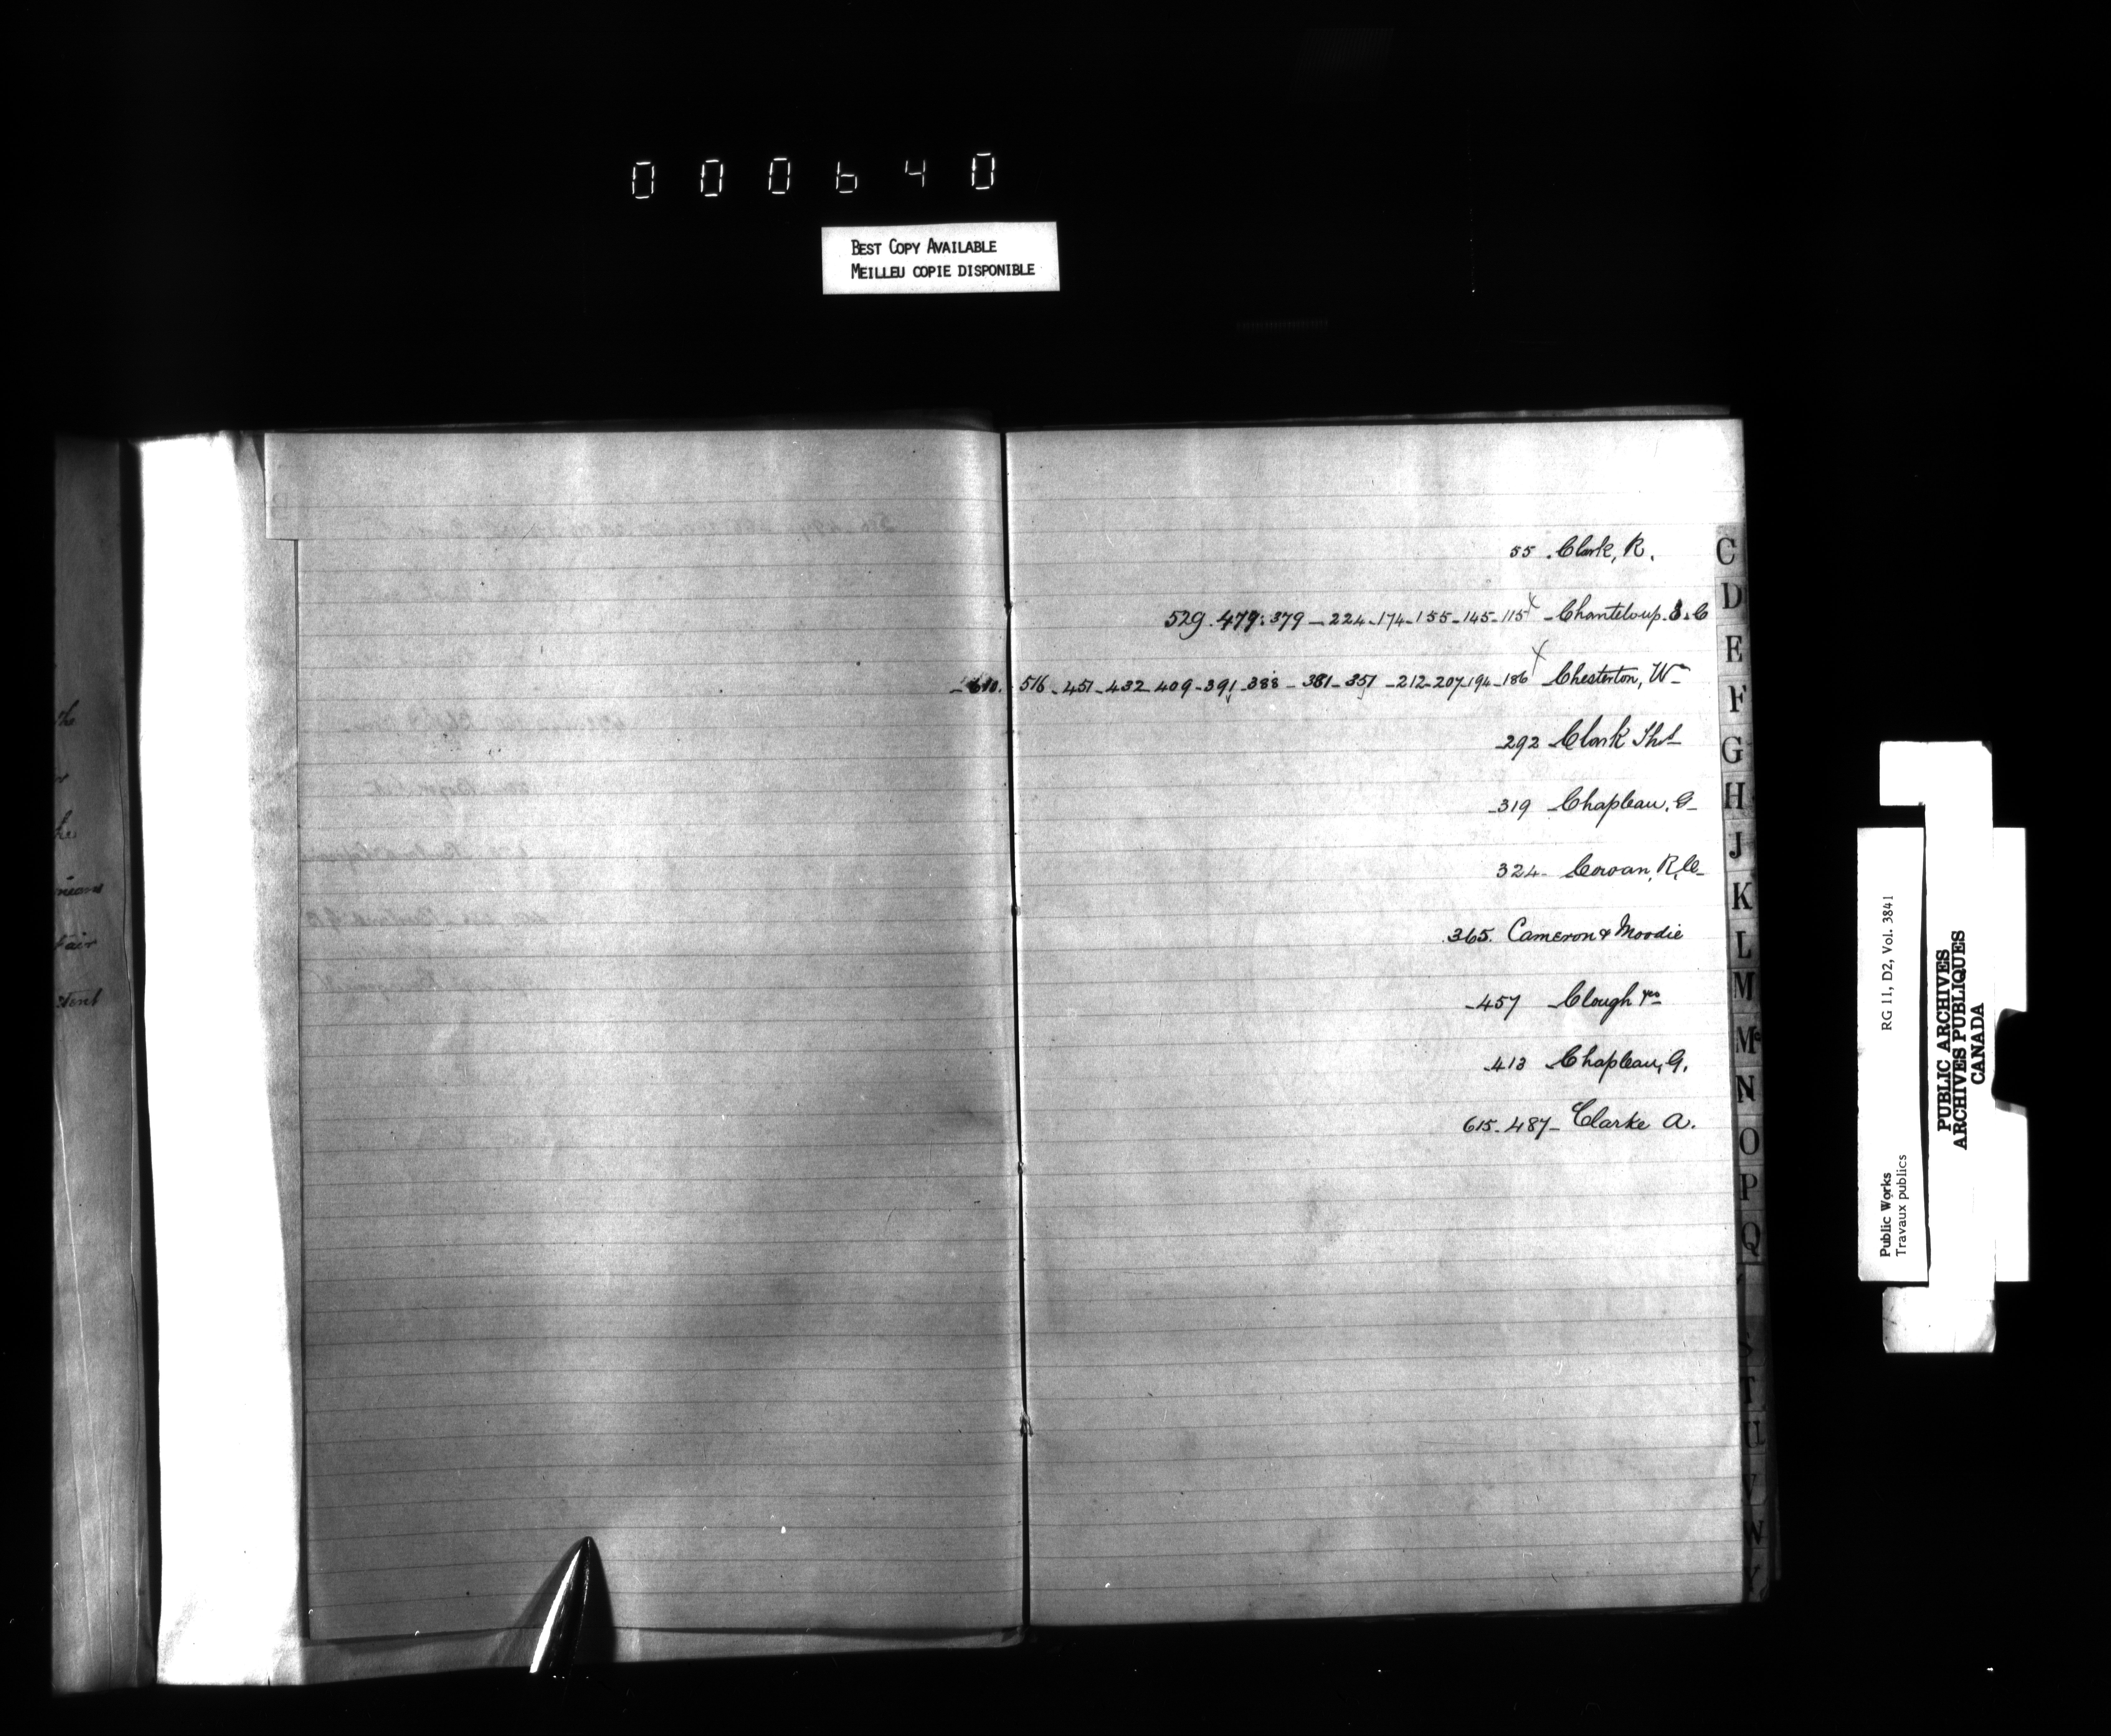 000640
BEST COPY AVAILABLE
MEILLEU COPIE DISPONIBLE
55 . Clark, R.
529 . 479 . 379 - 224 - 174 - 155 - 145 - 115 x - Chanteloup. E. C
- 610. 516 - 451 - 432 - 409 - 391 - 388 - 381 - 351 - 212 - 207 - 194 - 186 x Chesterton, W
- 292 Clark Thos
- 319 Chapleau, G
324 - Cowan, R, C
.365. Cameron & Moodie
- 457 Clough
- 413 Chapleau, G.
615 - 487 - Clarke A.
C
D
E
F
G
H
J
K
L
M
Mc
N
O
P
Q
S
T
U
V
W
Y
the
he
means
Fair
tent
Public Works
Travaux publics
RG 11, D2, Vol. 3841
PUBLIC ARCHIVES
ARCHIVES PUBLIQUES
CANADA